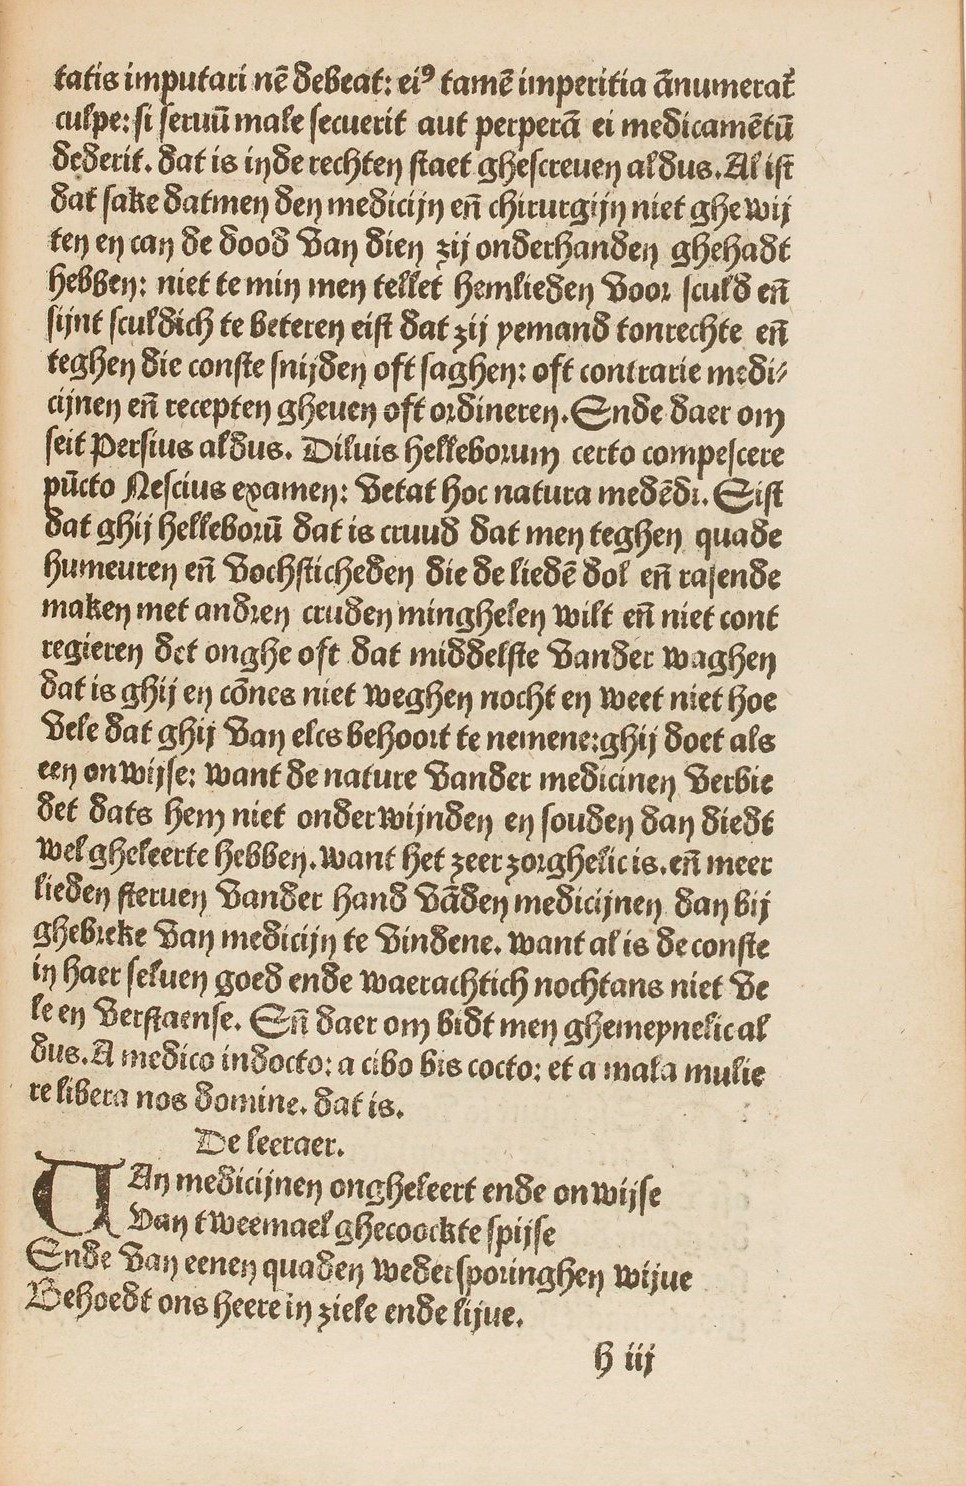 tatis imputari nē debeat: eiꝰ tamē imperitia ānumerat̄
culpe: si seruū male secuerit aut perperā ei medicamētū
dederit. dat is inde rechten staet ghescreuen aldus. Al ist
dat sake datmen den medicijn eñ chirurgijn niet ghe wij
ten en can de dood van dien zij onderhanden ghehadt
hebben: niet te min men tellet hemlieden voor sculd eñ
sijnt sculdich te beteren eist dat zij yemand tonrechte eñ
teghen die conste snijden oft saghen: oft contrarie medi⸗
cijnen eñ recepten gheuen oft ordineren. Ende daer om
seit Persius aldus. Diluis helleborum certo compescere
pūcto Nescius examen: vetat hoc natura medēdi. Eist
dat ghij helleborū dat is cruud dat men teghen quade
humeuren eñ vochsticheden die de liedē dol eñ rasende
maken met andren cruden minghelen wilt eñ niet cont
regieren det onghe oft dat middelste vander waghen
dat is ghij en cōnes niet weghen nocht en weet niet hoe
vele dat ghij van elcs behoort te nemene: ghij doet als
een onwijse: want de nature vander medicinen verbie
det dats hem niet onderwijnden en souden dan diedt
wel gheleerte hebben. want het zeer zorghelic is. eñ meer
lieden steruen vander hand vādden medicijnen dan bij
ghebreke van medicijn te vindene. want al is de conste
in haer seluen goed ende waerachtich nochtans niet ve
le en verstaense. Eñ daer om bidt men ghemeynelic al
dus. A medico indocto: a cibo bis cocto: et a mala mulie
re libera nos domine. dat is.
De leeraer.
VAn medicijnen ongheleert ende onwijse
Van tweemael ghecoockte spijse
Ende van eenen quaden wedersporinghen wijue
Behoedt ons heere in ziele ende lijue.
h iij